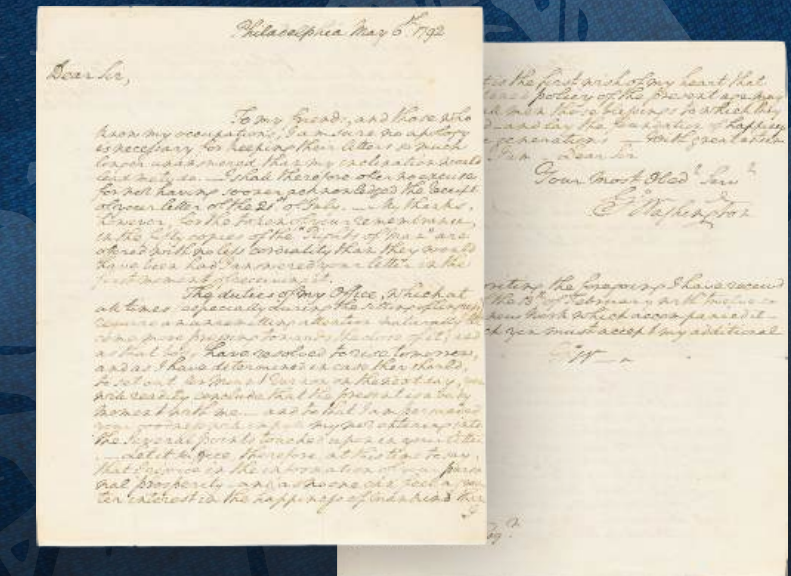 Philadelphia May 6th. 1792
Dear Sir,
To my friends, and those who
know my occupations, I am sure no apology
is necessary for keeping their letters so much
longer unanswered, than my inclination would
lead me to do. — I shall therefore offer no excuse
for not having sooner acknowledged the receipt
of your letter of the 21st of July. — My thanks,
however, for the token of your remembrance,
in the fifty copies of the "Rights of Man" are
offered with no less cordiality than they would
have been had I answered your letter in the
first moment of receiving it.
The duties of my Office, which at
all times (especially during the sitting of Congress)
require an unremitting attention naturally be
come more pressing towards the close of it; and
as that body have resolved to rise tomorrow,
and as I have determined in case they should,
to set out for Mount Vernon on the next day, you
will readily conclude that the present is a busy
moment with me — and to that I am persuaded
your goodness will impute my not entering into
the several points touched upon in your letter
— Let it suffice, therefore, at this time to say,
that I rejoice in the information of your perso
nal prosperity — and as no one can feel a grea
ter interest in the happiness of mankind than
I
it is the first wish of my heart that
policy of the present age may
men those blessings to which they
— and lay the foundation of happiness
generations — With great esteem
I am — Dear Sir
Your Most Obedt. Servt.
Go. Washington
writing the foregoing I have received
the 13th of February with twelve co
new Work which accompanied it —
ch you must accept my additional
Go. W — n